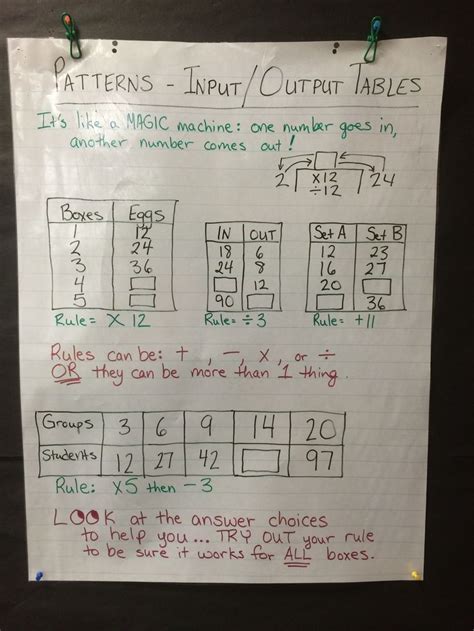 PATTERNS - INPUT/OUTPUT TABLES
It's like a MAGIC machine: one number goes in,
another number comes out!
2 x12 24
÷12
Boxes Eggs
1 12
2 24
3 36
4
5
Rule= x 12
IN OUT
18 6
24 8
12
90
Rule= ÷ 3
Set A Set B
12 23
16 27
20
36
Rule= +11
Rules can be: +, -, x, or ÷
OR they can be more than 1 thing.
Groups 3 6 9 14 20
Students 12 27 42 97
Rule: x5 then -3
LOOK at the answer choices
to help you... TRY OUT your rule
to be sure it works for ALL boxes.